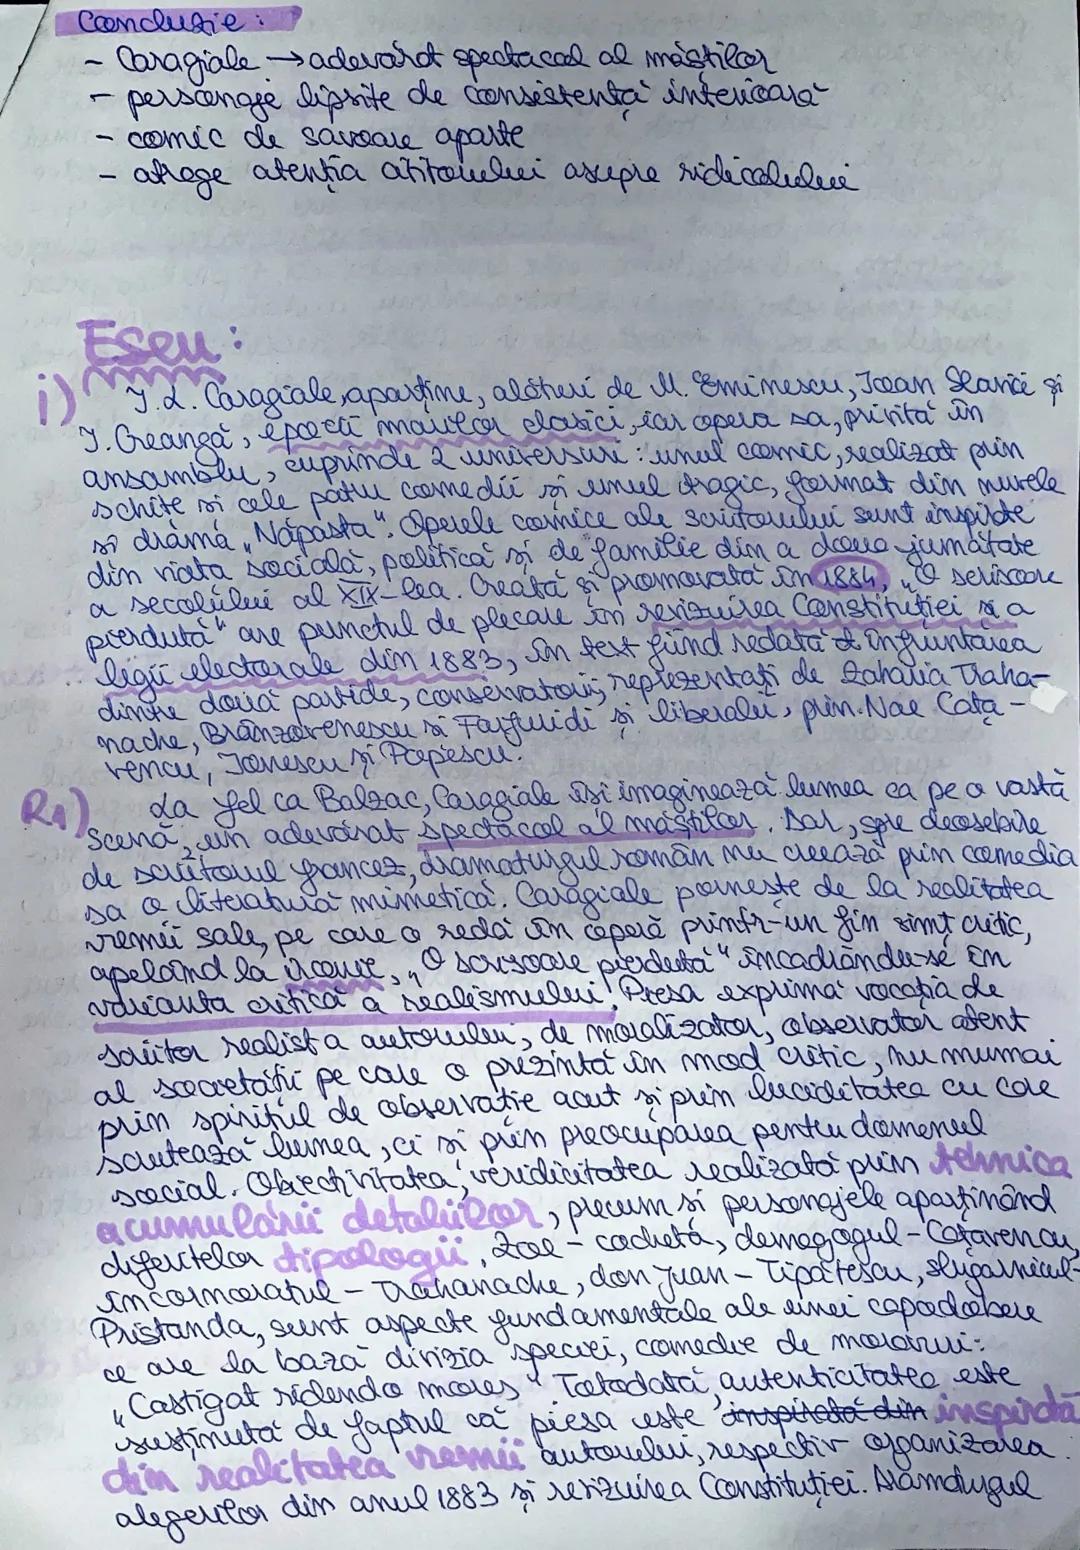 Concluzie:
- Caragiale → adevărat spectacol al măștilor
- personaje lipsite de consistență interioară
- comic de savoare aparte
- atrage atenția cititorului asupra ridicolului
Eseu:
i) I.L. Caragiale, aparține, alături de M. Eminescu, Ioan Slavici și
I. Creangă, epocii marilor clasici, iar opera sa, privită în
ansamblu, cuprinde 2 universuri: unul comic, realizat prin
schițe și cele patru comedii și unul tragic, format din nuvele
și dramă „Năpasta". Operele comice ale scriitorului sunt inspirate
din viața socială, politică și de familie din a doua jumătate
a secolului al XIX-lea. Creată și promovată în 1884, „O scrisoare
pierdută" are punctul de plecare în revizuirea Constituției și a
legii electorale din 1883, în text fiind redată înfruntarea
dintre două partide, conservatorii, reprezentați de Zaharia Traha-
nache, Brânzovenescu și Farfuridi și liberalii, prin Nae Cața-
vencu, Ionescu și Popescu.
R1) La fel ca Balzac, Caragiale își imaginează lumea ca pe o vastă
scenă, un adevărat spectacol al măștilor. Dar, spre deosebire
de scriitorul francez, dramaturgul român nu creează prin comedia
sa o literatură mimetică. Caragiale pornește de la realitatea
vremii sale, pe care o redă în operă printr-un fin simț critic,
apelând la ironie, „O scrisoare pierdută" încadrându-se în
varianta critică a realismului. Piesa exprimă vocația de
scriitor realist a autorului, de moralizator, observator atent
al societății pe care o prezintă în mod critic, nu numai
prin spiritul de observație acut și prin luciditatea cu care
scrutează lumea, ci și prin preocuparea pentru domeniul
social. Obiectivitatea, veridicitatea realizată prin tehnica
acumulării detaliilor, precum și personajele aparținând
diferitelor tipologii, Zoe - cochetă, demagogul - Cațavencu,
încornoratul - Trahanache, don juan - Tipătescu, slugarnicul-
Pristanda, sunt aspecte fundamentale ale unei capodopere
ce are la bază divizia speciei, comedie de moravuri:
„Castigat ridendo mores" Totodată, autenticitatea este
susținută de faptul că piesa este inspirată din inspirată
din realitatea vremii autorului, respectiv organizarea
alegerilor din anul 1883 și revizuirea Constituției. Dramaturgul